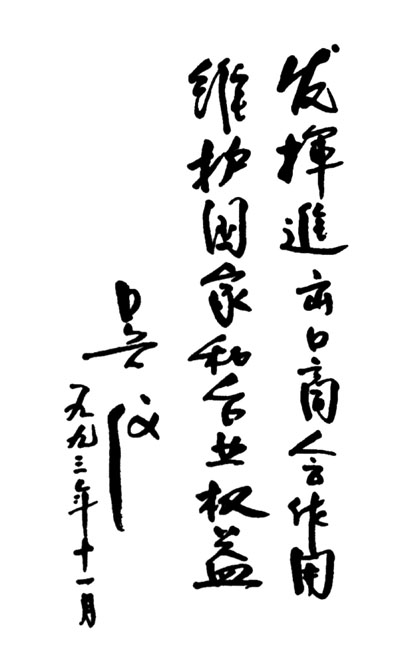 发挥進出口商会作用
维护国家和企业权益
吴仪
一九九三年十一月